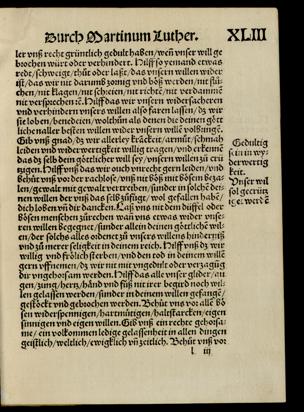 Durch Martinum Luther. XLIII
ler vnß recht grüntlich gedult haben/ weñ vnser will ge
brochen würt oder verhindert. Hilff so yemand etwas
redt/ schweigt/ thůt oder laßt/ das vnserm willen wider
ist/ das wir nit darumb zornig vnd böß werden/ nit flů
chen/ nit klagen/ nit schreien/ nit richtē/ nit verdammē
nit versprechen ꝛc. Hilff das wir vnsern widersachern
vnd verhindern vnsers willen also statt lassen/ dz wir
sie loben/ benedeien/ wolthůn als denen die deinen gött
lichē aller besten willen wider vnsern willē volbringē.
Gib vnß gnad/ dz wir allerley kräckeit/ armůt/ schmah
leiden vnd widerwertigkeit willig tragen/ vnd erkennē
das dz selb dein götlicher will sey/ vnsern willen zů crü
zigen. Hilff vnß das wir auch vnrecht gern leiden/ vnd
behüt vnß vor der rachselig/ vnß nit böß mit bösem bezalen
len/ gewalt mit gewalt vertreiben/ sunder in solchē dei
nen willen der vnß das selb zůfügt/ wol gefallen habē/
dich loben vñ dir dancken. Laß vnß nit dem düffel oder
bösen menschen zůrechen wañ vns etwas wider vnse-
ren willen begegnet/ sunder allein deinen götlichē will-
en/ der solchs alles ordenet zů vnsers willens hindernüß
vnd zů merer seligkeit in deinem reich. Hilff vnß dz wir
willig vnd frölich sterben/ vnd den tod in deinem willē
gern vffnemen/ dz wir nit mit vngedult oder verzagūg
dir vngehorsam werden. Hilff das alle vnser glider/ au-
gen/ zung/ hertz/ händ vnd füß nit irer begird noch will-
en gelassen werden/ sunder in deinem willen gefangē/
gestöckt vnd gebrochen werden. Behüt vns vor allē bö
sen widerspennigen/ hartmütigen/ halstarcken/ eigen
sinnigen vnd eigen willen. Gib vnß ein rechte gehorsa-
me/ ein volkommen ledige gelassenheit in allen dingen
geistlich/ weltlich/ ewigklich vñ zeitlich. Behüt vnß vor
l iij
Gedultig
sein in wy
der wertig
keit.
Vnser wil
sol gecrütz
ige. werdē